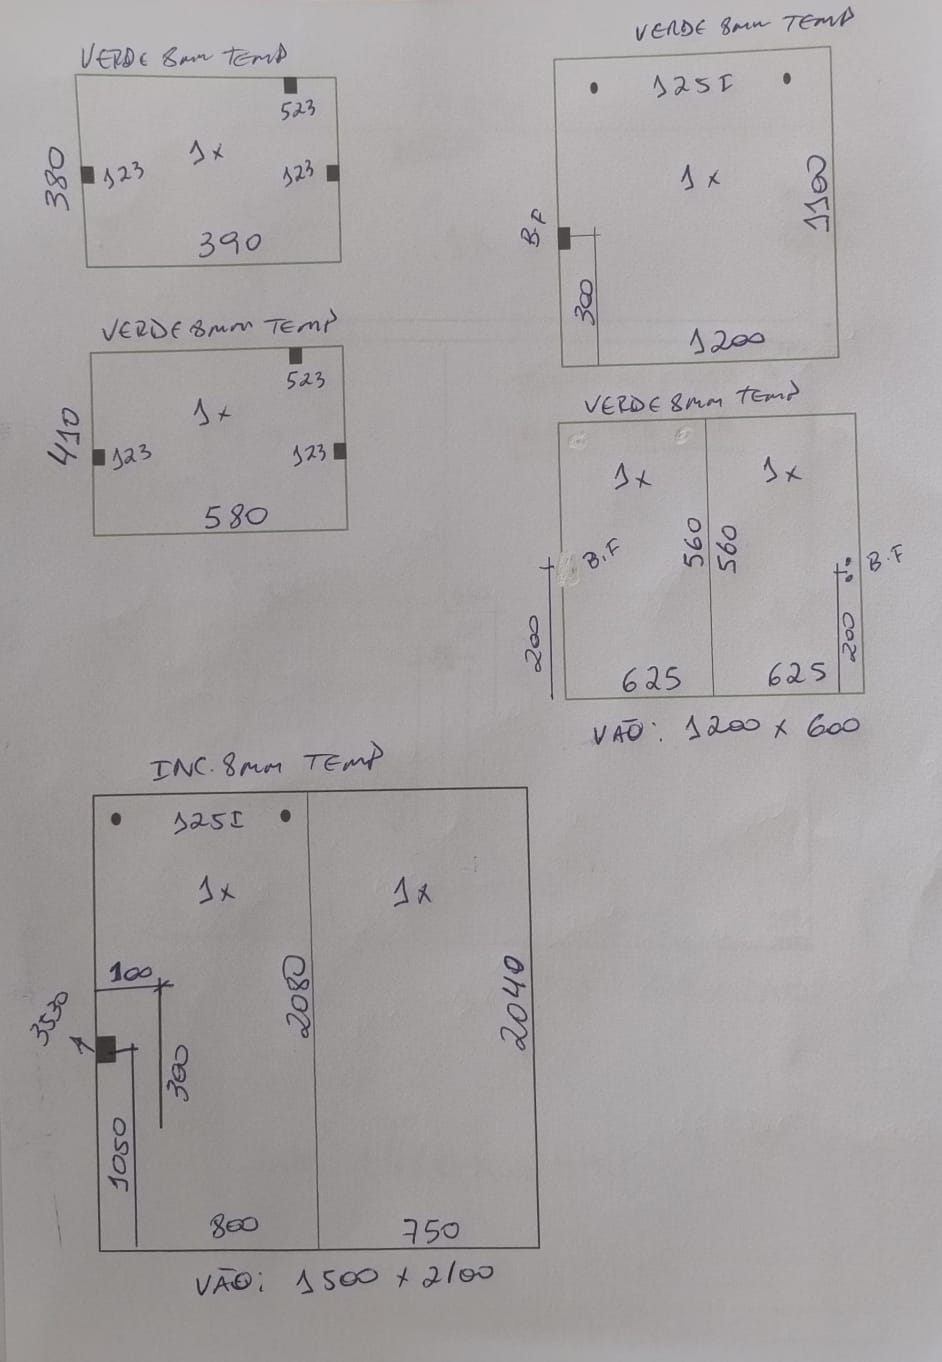 VERDE 8mm TEMP
523
1x
123
123
380
390
VERDE 8mm TEMP
125I
1x
1100
B.F
300
1200
VERDE 8mm TEMP
523
1x
410
123
123
580
VERDE 8mm TEMP
1x
1x
560
560
B.F
B.F
200
200
625
625
VÃO: 1200 x 600
INC. 8mm TEMP
125I
1x
1x
100
2080
2040
3530
300
1050
800
750
VÃO: 1500 x 2100